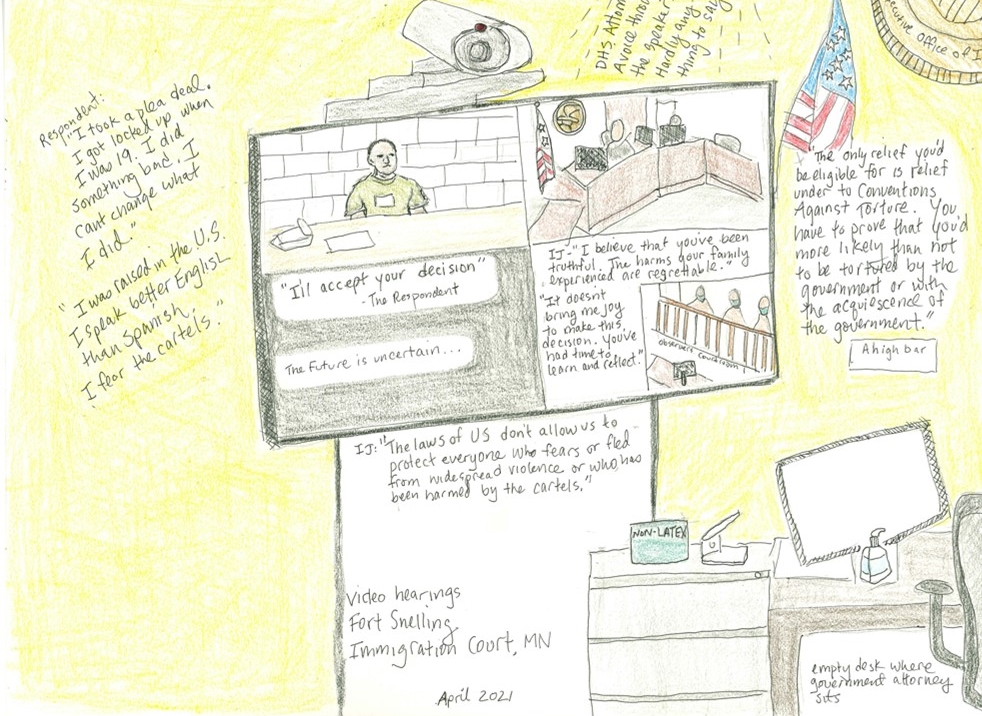 DHS. Attor
A voice throu
the speaker
Hardly any
thing to say
ecutive Office of I
Respondent:
"I took a plea deal.
I got locked up when
I was 19. I did
something bad. I
cant change what
I did."
"I was raised in the U.S.
I speak better English
than Spanish.
I fear the cartels."
"I'll accept your decision"
- The Respondent
The Future is uncertain...
IJ- "I believe that you've been
truthful. The harms your family
experienced are regrettable."
"It doesn't
bring me joy
to make this
decision. You've
had time to
learn and reflect."
observers courtroom 1
"The only relief you'd
be eligible for is relief
under to Conventions
Against Torture. You
have to prove that you'd
more likely than not
to be tortured by the
government or with
the acquiescence of
the government."
A high bar
IJ: "The laws of US don't allow us to
protect everyone who fears or fled
from widespread violence or who has
been harmed by the cartels."
NON-LATEX
video hearings
Fort Snelling
Immigration Court, MN
April 2021
empty desk where
government attorney
sits